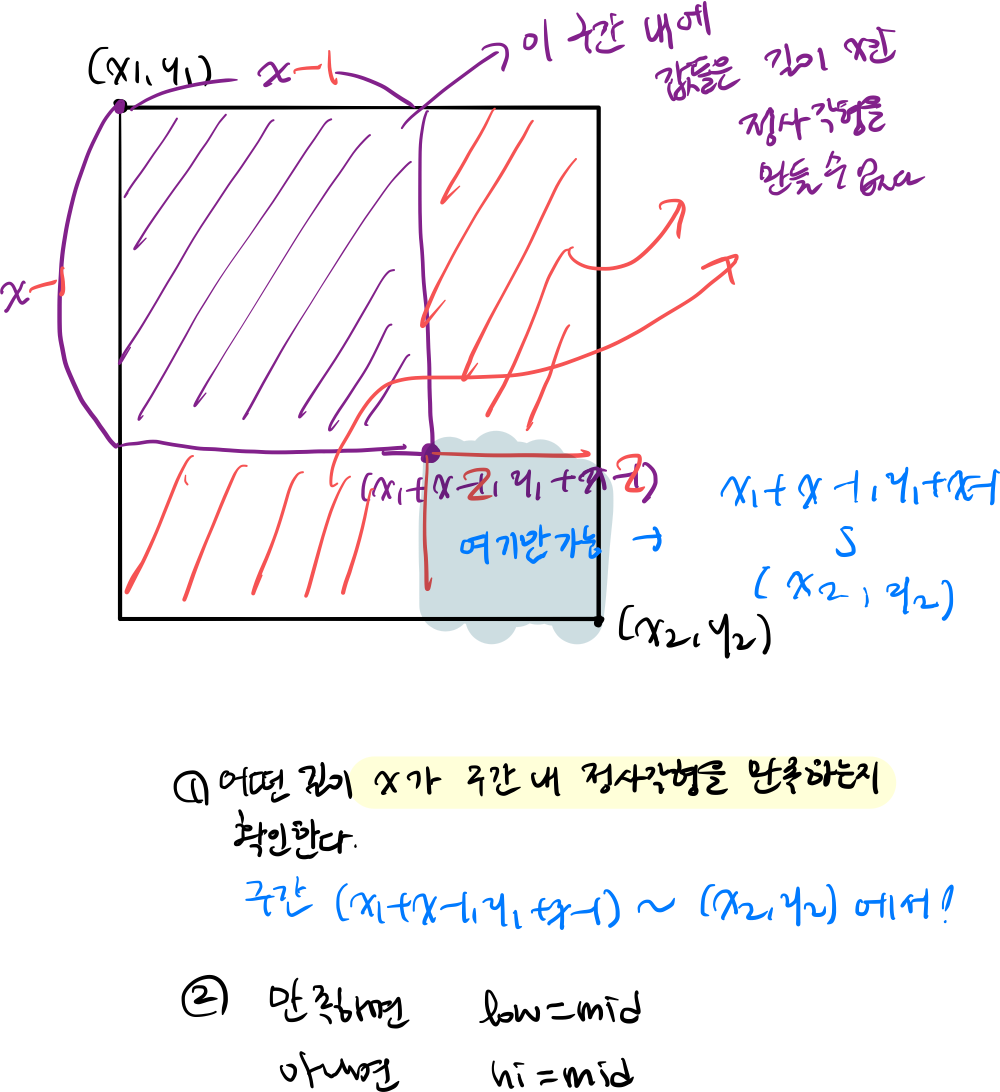 (x1, y1)
x-1
이 구간 내에
값들은 길이 x인
정사각형을
만들 수 없다
x-1
(x1+x-2, y1+x-2)
x1+x-1, y1+x-1
여기만 가능 →
S
(x2, y2)
(x2, y2)
① 어떤 길이 x가 구간 내 정사각형을 만족하는지
확인한다.
구간 (x1+x-1, y1+x-1) ~ (x2, y2) 에서!
② 만족하면 low=mid
아니면 hi=mid